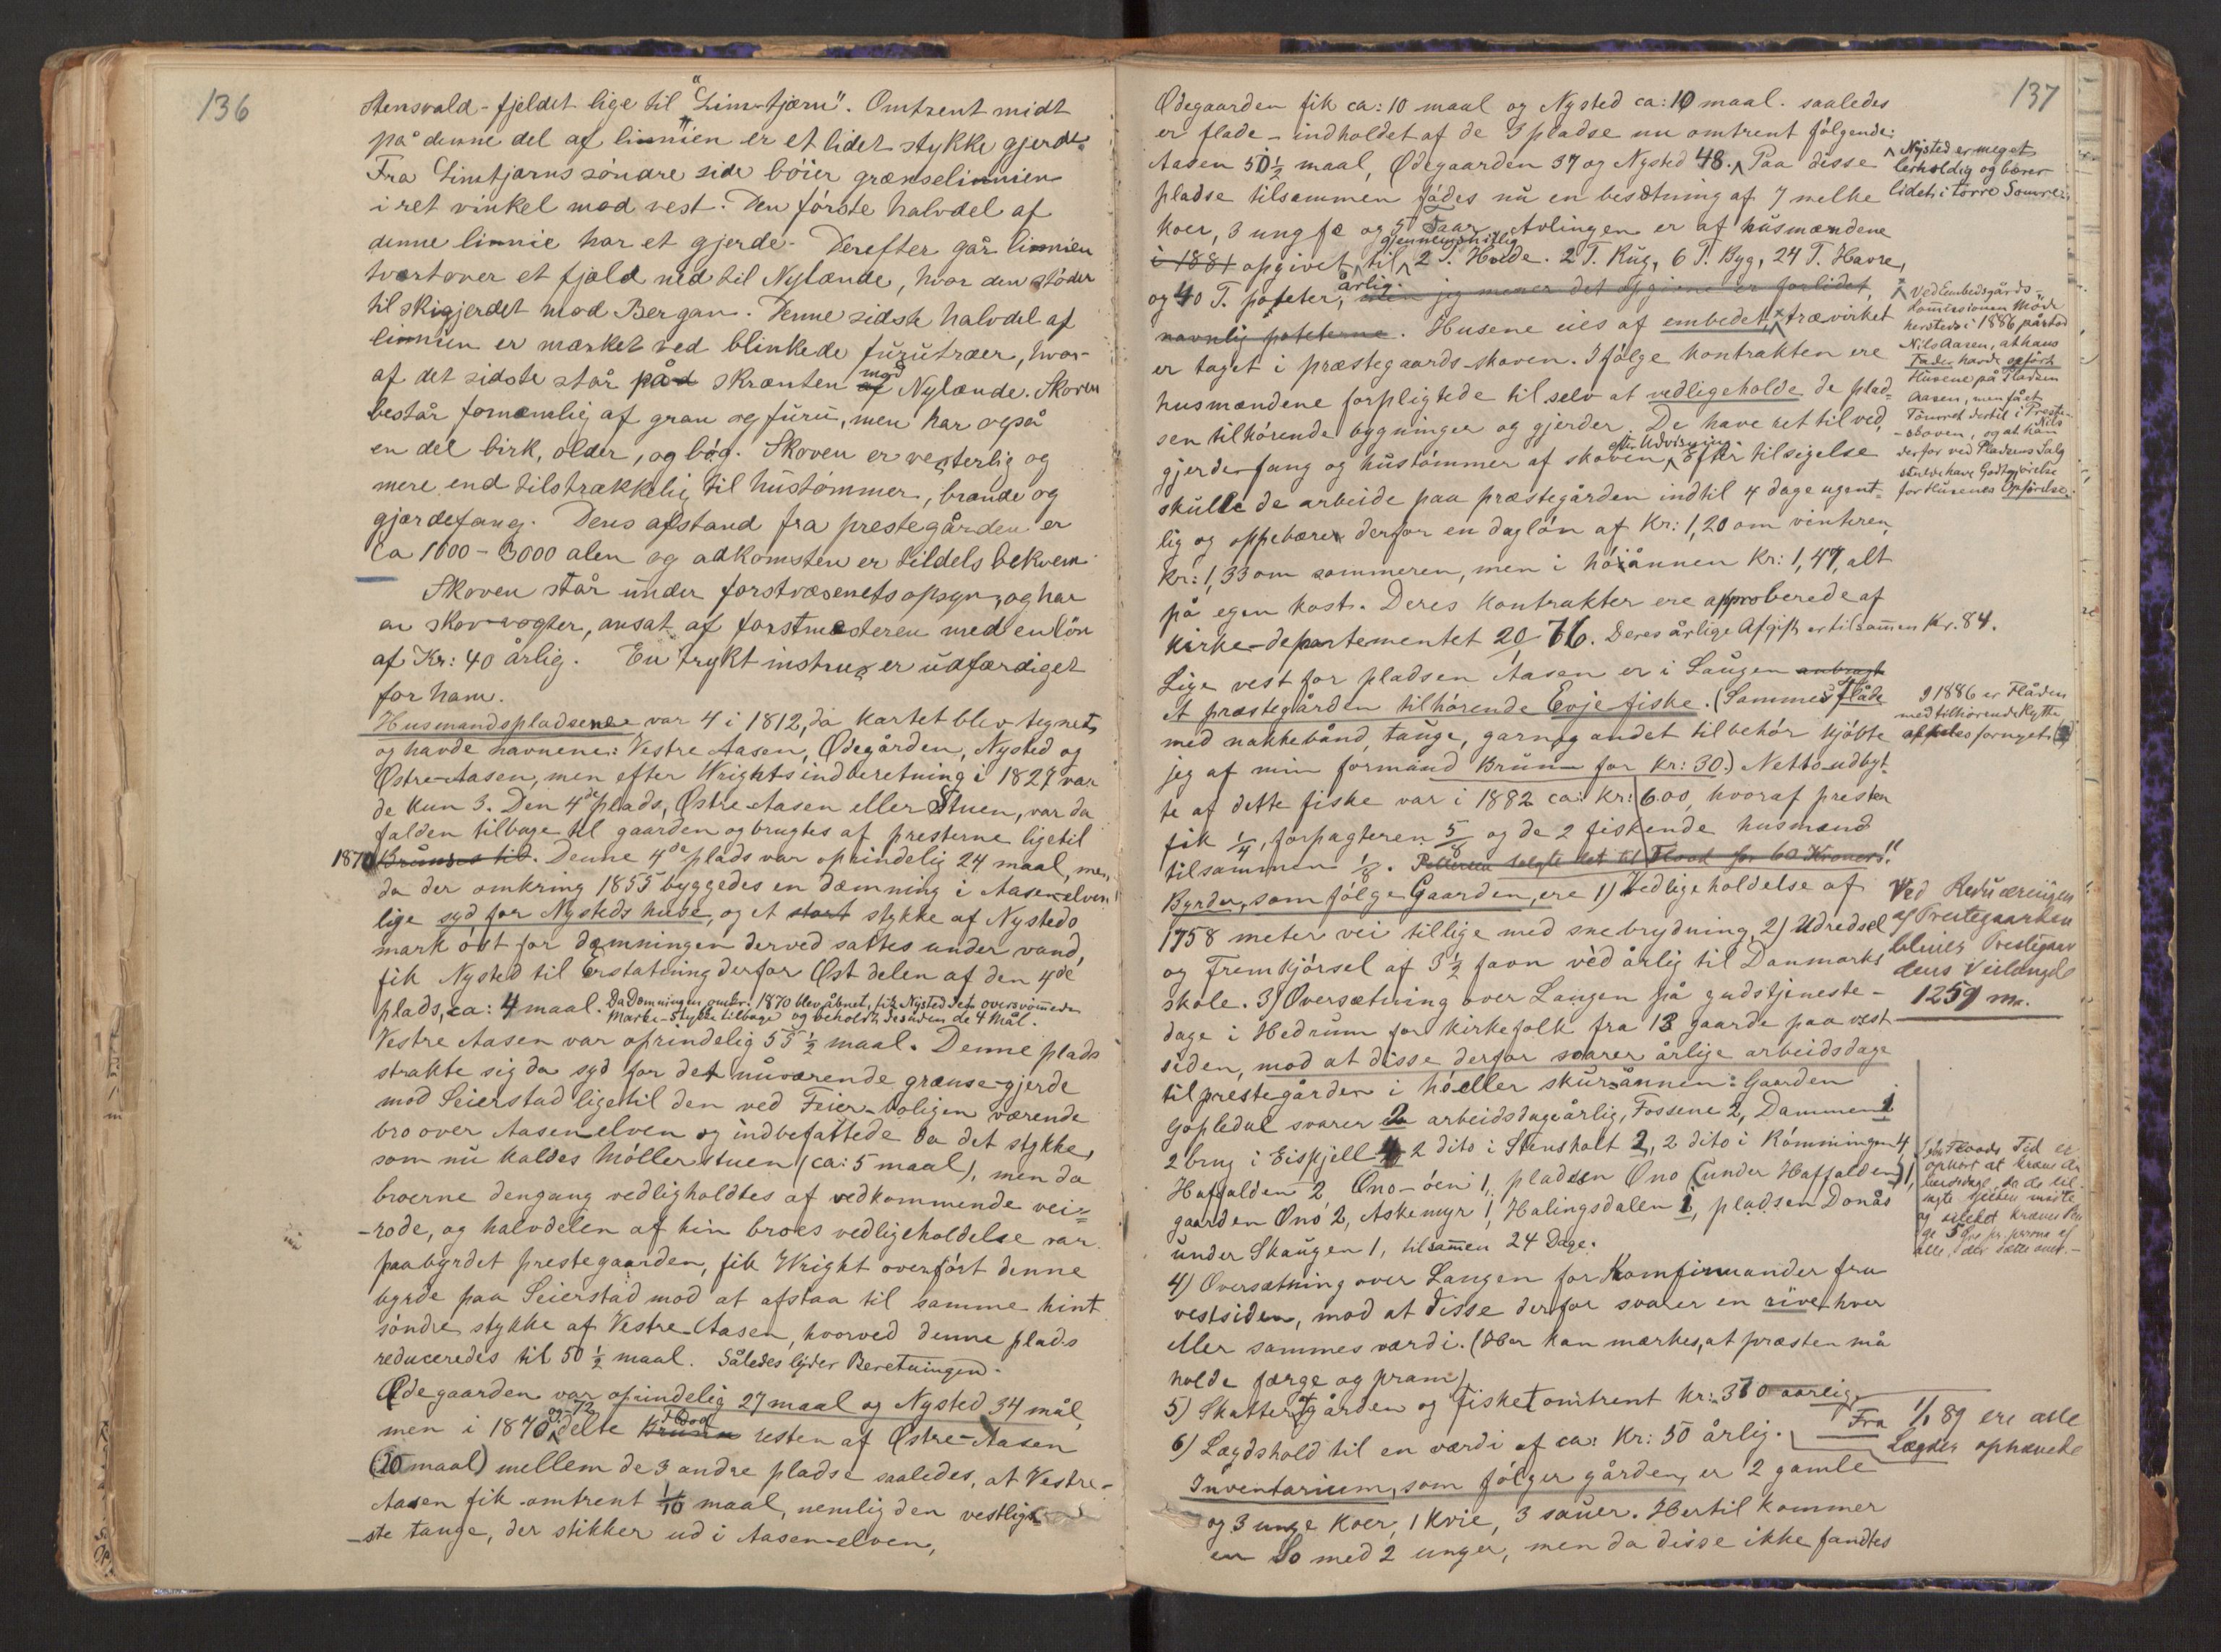 136
stensvald-fjeldet lige til "Lim-tjærn". Omtrent midt
på denne del af linnien er et lidet stykke gjerde.
Fra Limtjærns söndre side böier grænselinnien
i ret vinkel mod vest. Den förste halvdel af
denne linnie har et gjerde. Derefter går linnien
tvertover et fjeld ned til Nylænde, hvor den stöder
til skigjerdet mod Bergan. Denne sidste halvdel af
linnien er mærket ved blinkede furutræer, hvor-
af det sidste står på skrænten mod Nylænde. Skoven
består fornemlig af gran og furu, men har også
en del birk, older, og bög. Skoven er vexterlig og
mere end tilstrækkelig til hustömmer, brænde og
gjærdefang. Dens afstand fra prestegården er
ca 1000-3000 alen og adkomsten er tildels bekvem.
Skoven står under forstvæsenets opsyn, og har
en skov-vogter, ansat af forstmesteren med en lön
af Kr: 40 årlig. En trykt instrux er udfærdiget
for ham.
Husmandspladsene var 4 i 1812, da kartet blev tegnet,
og havde navnene: Vestre Aasen, Ødegården, Nysted og
Østre-Aasen, men efter Wrights indberetning i 1827 var
de kun 3. Den 4de plads, Østre Aasen eller Stuen, var da
falden tilbage til gaarden og brugtes af presterne ligetil
1870 Brünns tid. Denne 4de plads var oprindelig 24 maal, men
da der omkring 1855 byggedes en dæmning i Aasen-elven
lige syd for Nysteds huse, og et stort stykke af Nysteds
mark öst for dæmningen derved sattes under vand,
fik Nysted til Erstatning derfor Øst delen af den 4de
plads, ca: 4 maal. Da Dæmningen omkr. 1870 blev åbnet, fik Nysted den oversvömmede
Mark-stykke tilbage og beholdt desuden de 4 Mål.
Vestre Aasen var oprindelig 55 1/2 maal. Denne plads
strakte sig da syd for det nuværende grænse-gjerde
mod Seierstad ligetil den ved Feier-boligen værende
bro over Aasen elven og indbefattede da det stykke,
som nu kaldes Möllerstuen (ca: 5 maal), men da
broerne dengang vedligholdtes af vedkommende vei-
-rode, og halvdelen af hin broes vedligeholdelse var
paabyrdet prestegaarden, fik Wright overfört denne
byrde paa Seierstad mod at afstaa til samme hint
söndre stykke af Vestre-Aasen, hvorved denne plads
reduceredes til 50 1/2 maal. Således lyder Beretningen.
Ødegaarden var oprindelig 27 maal og Nysted 34 mål,
men i 1870 og -72 delte Brünn Flood resten af Østre-Aasen
(20 maal) mellem de 3 andre pladse saaledes, at Vestre-
Aasen fik omtrent 1/10 maal, nemlig den vestlig-
-ste tange, der stikker ud i Aasen-elven,
137
Ødegaarden fik ca: 10 maal og Nysted ca: 10 maal. saaledes
er flade-indholdet af de 3 pladse nu omtrent fölgende:
Aasen 50 1/2 maal, Ødegaarden 37 og Nysted 48. Paa disse
Nysted er meget
lerholdig og bærer
lidet i törre Somre.
pladse tilsammen födes nu en besætning af 7 melke
koer, 3 ungfæ og 5 Faar. Avlingen er af husmændene
i 1881 opgivet gjennemsnitlig til 2 T. Hvede. 2 T. Rug, 6 T. Byg, 24 T. Havre,
og 40 T. poteter, årlig. men jeg mener det opgivne er forlidet,
navnlig poteterne. Husene eies af embedet, trævirket
er taget i præstegaards-skoven. Ifölge kontrakten ere
husmændene forpligtede til selv at vedligeholde de plad-
sen tilhörende bygninger og gjerder. De have ret til ved,
gjerdefang og hustömmer af skoven efter Udvisning. Efter tilsigelse
skulle de arbeide paa præstegården indtil 4 dage ugent-
lig og oppebærer derfor en daglön af Kr: 1,20 om vinteren,
Kr: 1,33 om sommeren, men i höiånnen Kr: 1,47, alt
på egen kost. Deres kontrakter ere approberede af
Kirke-departementet 20/ 76. Deres årlige Afgift er tilsammen Kr. 84.
Ved Embedsgårds-
Kommissionens Möde
hersteds i 1886 påstod
Nils Aasen, at hans
Fader havde opfört
Husene på Pladsen
Aasen, men fået
Tömret dertil i Preste-
-skoven, og at han Nils
derfor ved Pladsens Salg
skulde have Godtgjörelse
for Husenes Opförelse.
Lige vest for pladsen Aasen er i Laugen anbragt
et præstegården tilhörende Evje fiske. (Sammes flåde
med nakkebånd, tauge, garn og andet tilbehör kjöbte
jeg af min formand Brünn for Kr: 30.) Netto-udbyt-
te af dette fiske var i 1882 ca: Kr: 600, hvoraf presten
fik 1/4, forpagteren 5/8 og de 2 fiskende husmænd
tilsammen 1/8.
I 1886 er Flåden
med tilhörende Hytte
fornyet
Byrder, som fölge Gaarden, ere 1) Vedligeholdelse af
1758 meter vei tillige med snebrydning. 2) Udredsel
og Fremkjörsel af 3 1/2 favn ved årlig til Danmarks
skole. 3) Oversætning over Laugen på gudstjeneste-
dage i Hedrum for kirkefolk fra 13 gaarde paa vest-
siden, mod at disse derfor svarer årlige arbeidsdage
til prestegården i hö eller skurånnen: Gaarden
Gopledal svarer 2 arbeidsdage årlig, Fossene 2, Dammen 1
2 brug i Eispjell 4 2 dito i Stensholt 2, 2 dito i Römmingen 4
Haffalden 2 Ono-öen 1, pladsen Ono (under Haffalden) 1,
gaarden Onö 2, Askemyr 1, Halingsdalen 1, pladsen Donås
under Skaugen 1, tilsammen 24 Dage.
Ved Reduceringen
af Prestegaarden
bliver Prestegaar
dens Veilængde
1259 m.
4) Oversætning over Laugen for Komfirmander fra
vestsiden, mod at disse derfor svarer en rive hver
eller sammes værdi. (Her kan mærkes, at præsten må
holde færge og pram)
5) Skatter af gården og fisket omtrent Kr: 370 aarlig.
6) Lægdshold til en værdi af ca: Kr: 50 årlig.
Fra 1/1 89 ere alle
Lægder ophævede
Inventarium, som fölger gården, er 2 gamle
og 3 unge Koer, 1 Kvie, 3 sauer. Hertil kommer
en So med 2 unger, men da disse ikke fandtes